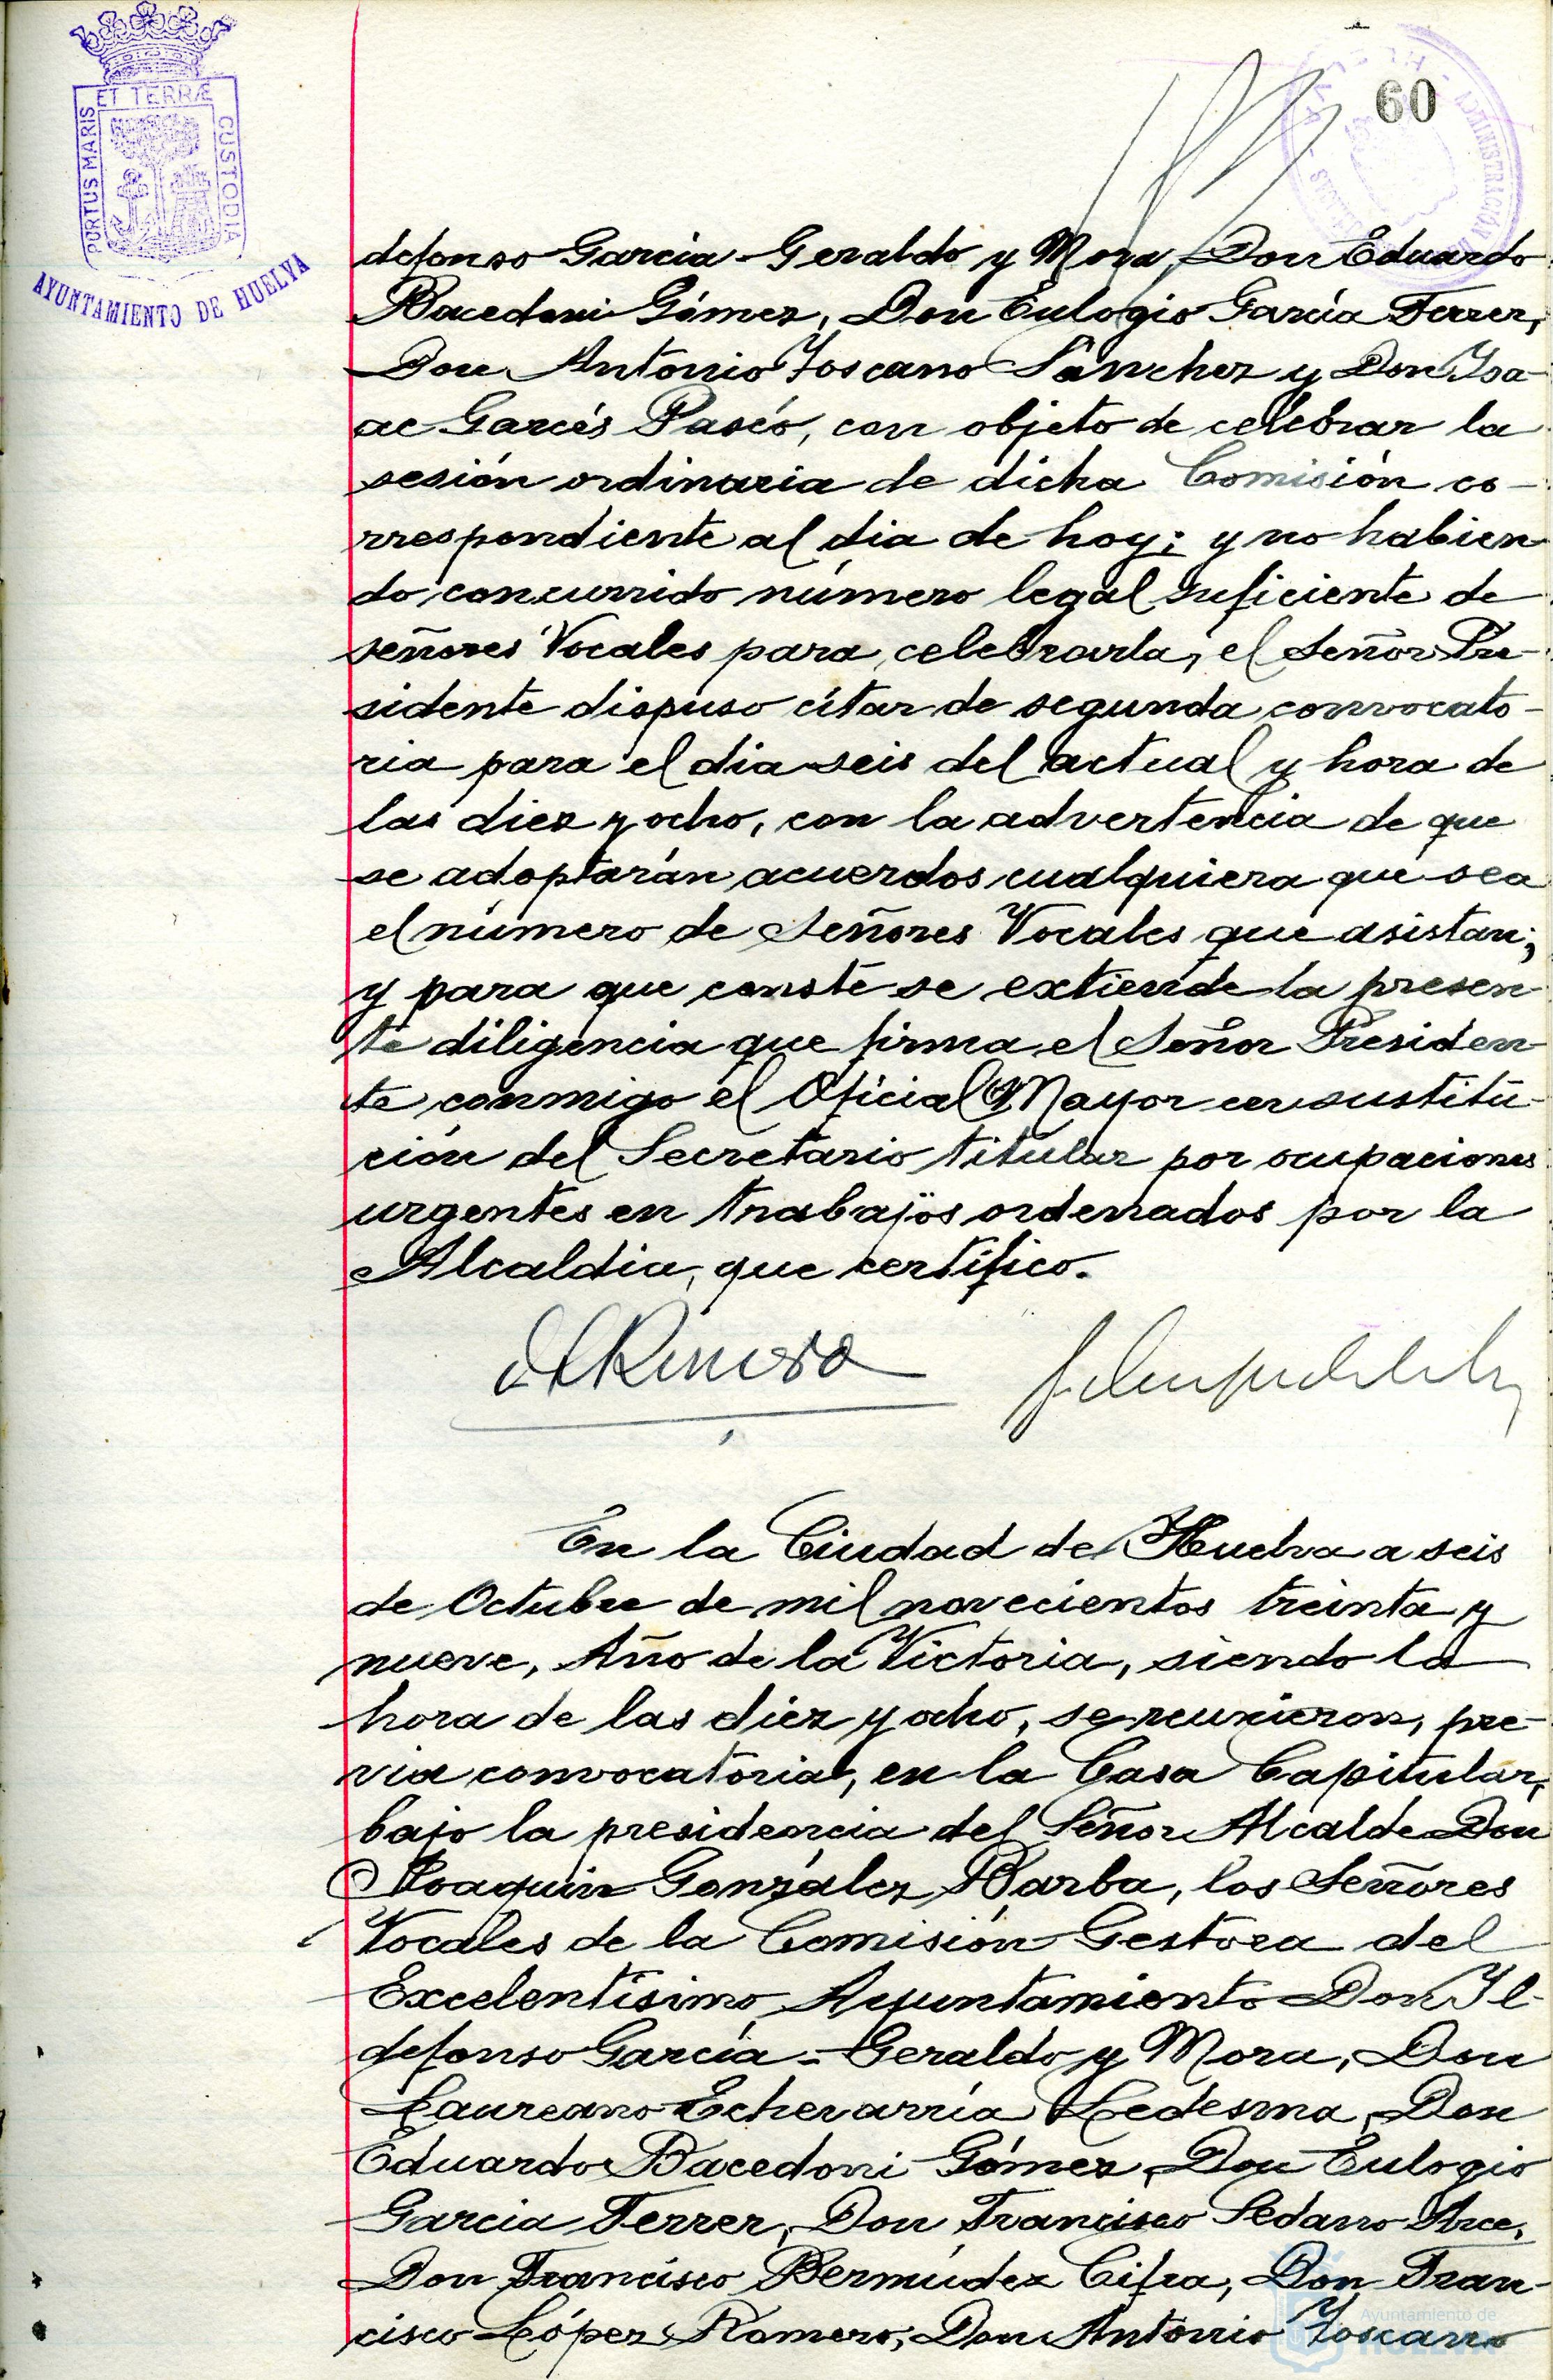 60
PORTUS MARIS
ET TERRÆ
CUSTODIA
AYUNTAMIENTO DE HUELVA
ADMINISTRACIÓN
defonso García-Geraldo y Mora, Don Eduardo
Bacedoni Gómez, Don Eulogio García Ferrer,
Don Antonio Toscano Sánchez y Don Isa-
ac Garcés Paseó, con objeto de celebrar la
sesión ordinaria de dicha Comisión co-
rrespondiente al dia de hoy; y no habien
do concurrido número legal suficiente de
señores Vocales para celebrarla, el Señor Pre-
sidente dispuso citar de segunda convocato-
ria para el dia seis del actual y hora de
las diez y ocho, con la advertencia de que
se adoptarán acuerdos cualquiera que sea
el número de Señores Vocales que asistan;
y para que conste se extiende la presen
te diligencia que firma el Señor Presiden
te conmigo el Oficial Mayor en sustitu-
ción del Secretario titular por ocupaciones
urgentes en trabajos ordenados por la
Alcaldia, que certifico.
En la Ciudad de Huelva a seis
de Octubre de mil novecientos treinta y
nueve, Año de la Victoria, siendo la
hora de las diez y ocho, se reunieron, pre-
via convocatoria, en la Casa Capitular,
bajo la presidencia del Señor Alcalde Don
Joaquín González Barba, los Señores
Vocales de la Comisión Gestora del
Excelentísimo Ayuntamiento Don Il-
defonso García-Geraldo y Mora, Don
Laureano Echevarría Ledesma, Don
Eduardo Bacedoni Gómez, Don Eulogio
García Ferrer, Don Francisco Sedano Arce,
Don Francisco Bermúdez Cifra, Don Fran-
cisco López Romero, Don Antonio Toscano
Ayuntamiento de
HUELVA